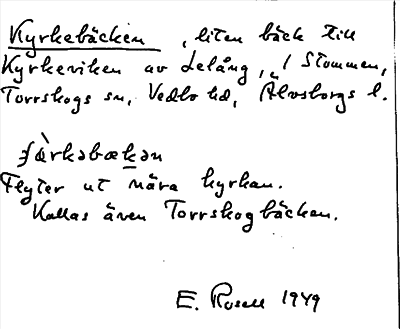 Kyrkebäcken, liten bäck till
Kyrkeviken av Lelång, i Stommen,
Torrskogs sn, Vedbo hd, Älvsborgs l.
Flyter ut nära kyrkan.
Kallas även Torrskogbäcken.
E. Rosell 1949